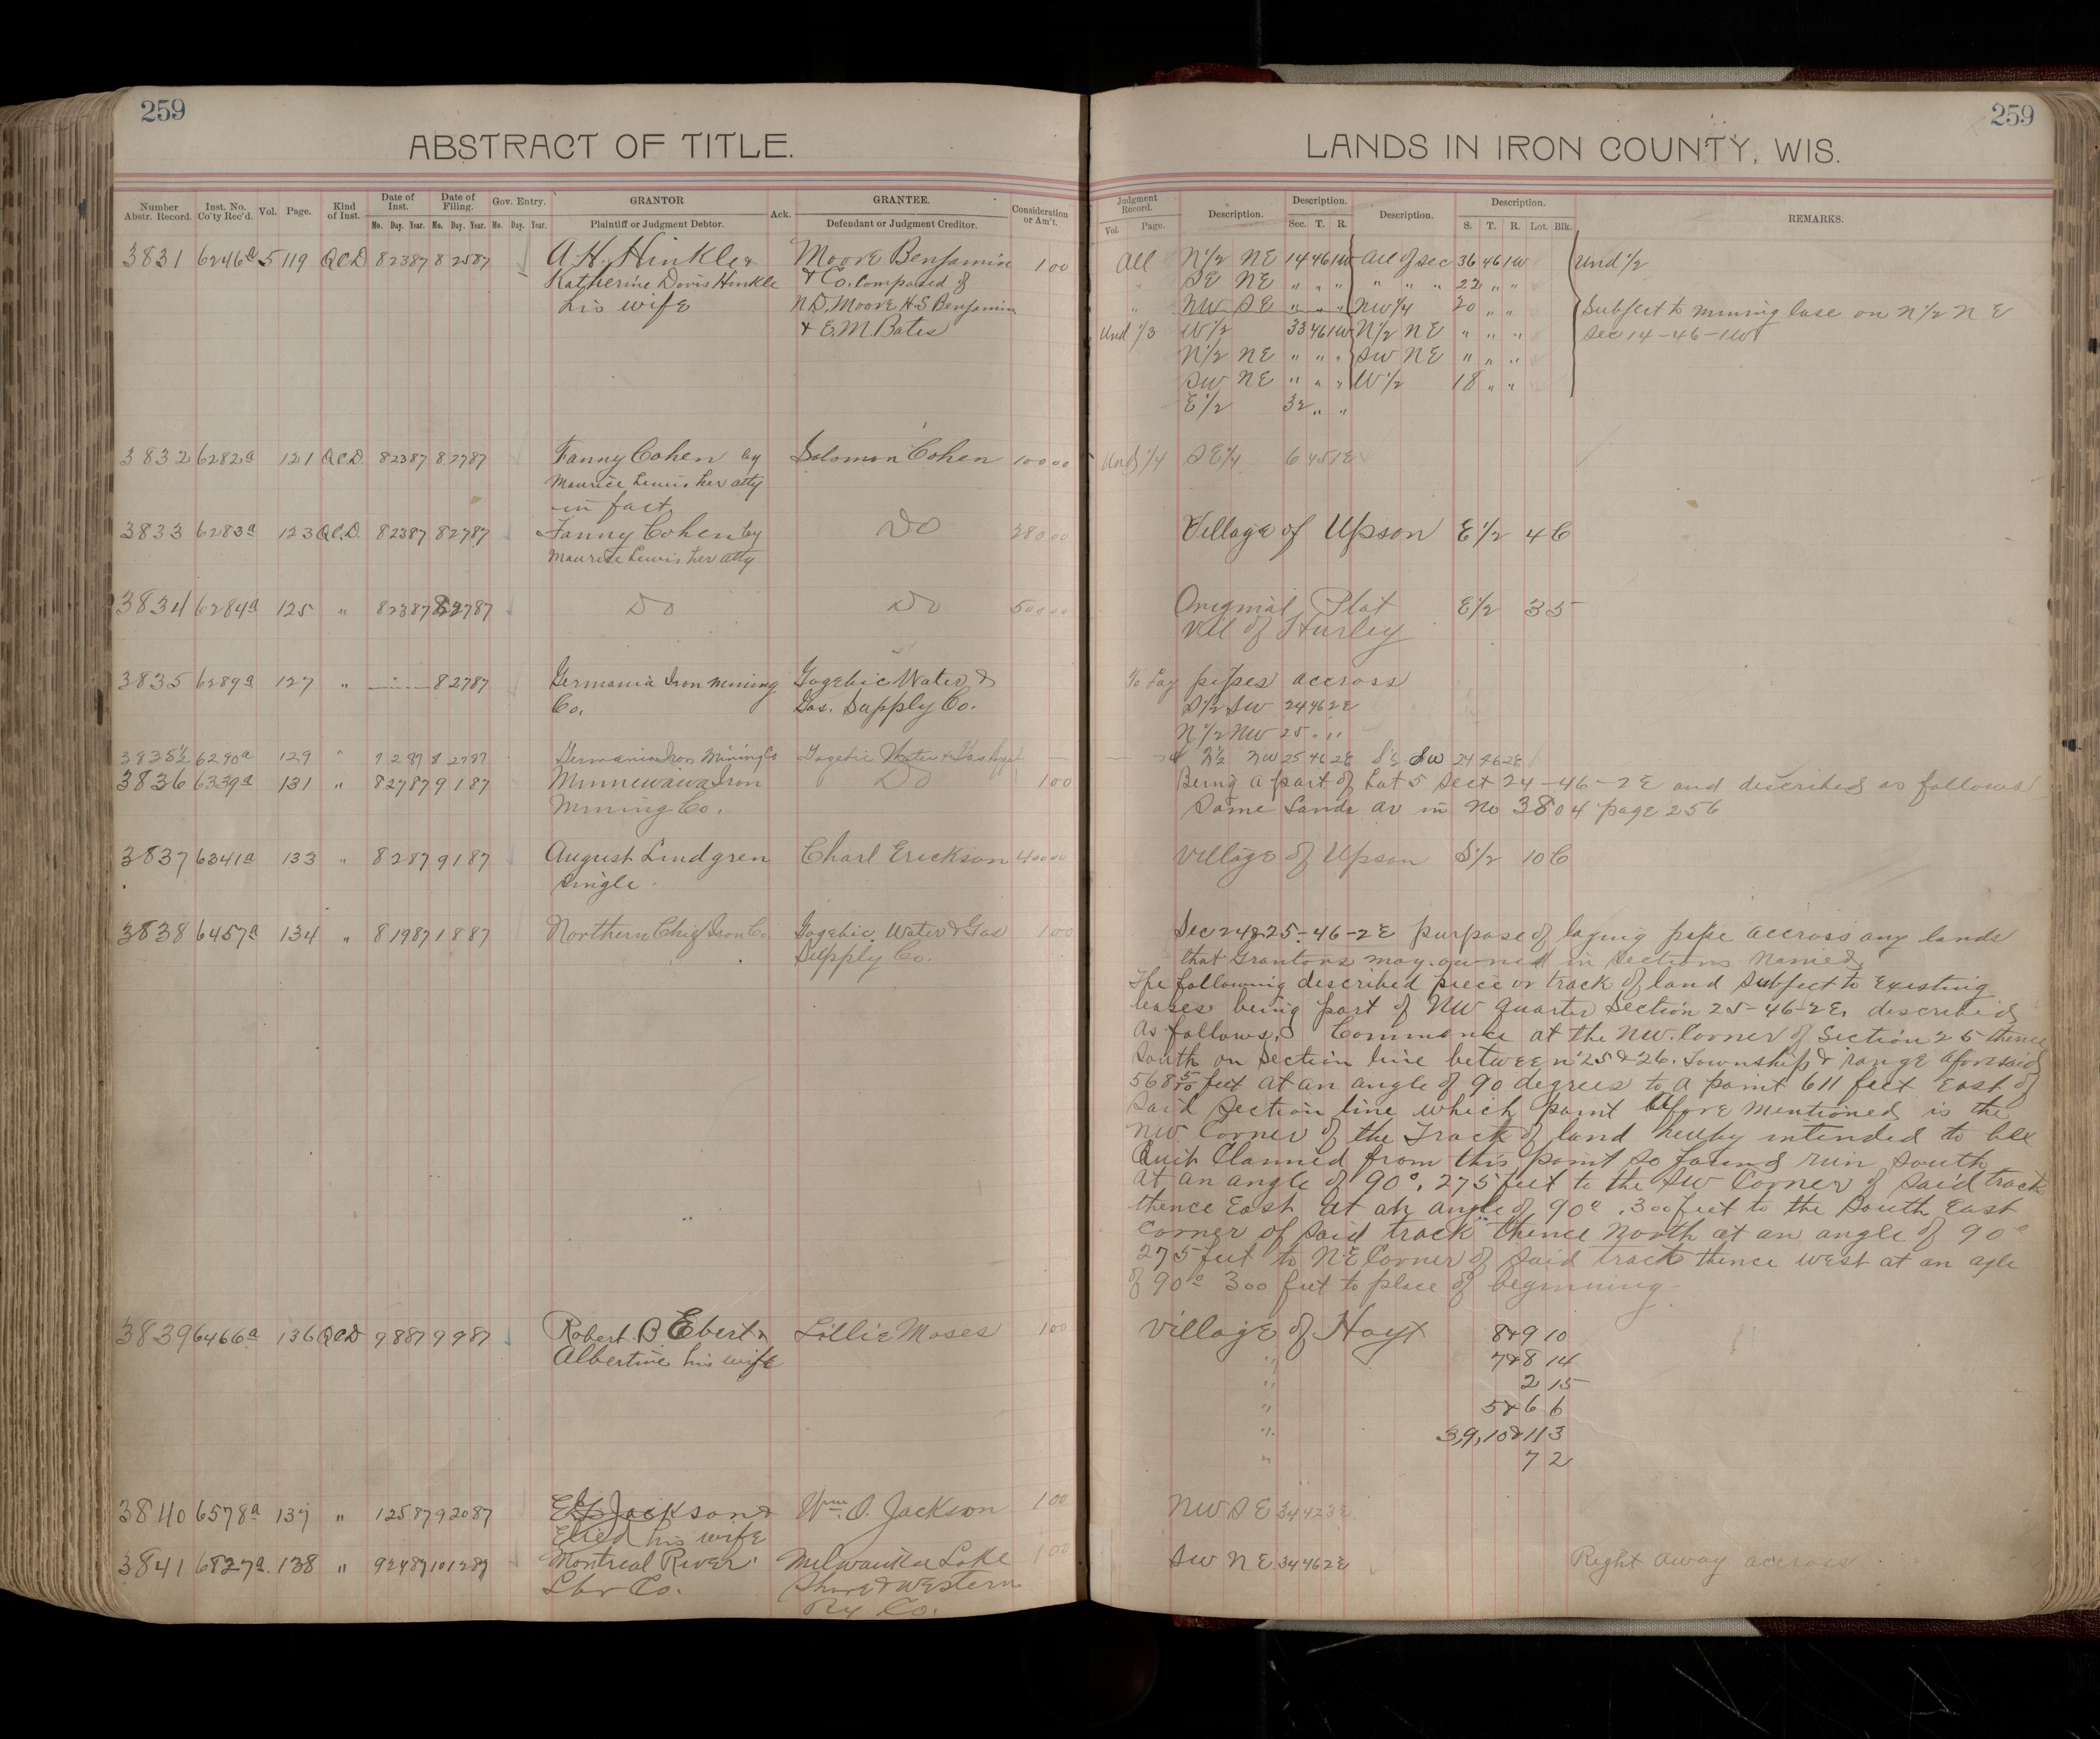 259
ABSTRACT OF TITLE.
Number Abstr. Record. Inst. No. Co'ty Rec'd. Vol. Page. Kind of Inst. Date of Inst. Date of Filing. Gov. Entry. GRANTOR Ack. GRANTEE. Consideration or Am't.
Mo. Day. Year. Mo. Day. Year. Mo. Day. Year. Plaintiff or Judgment Debtor. Defendant or Judgment Creditor.
3831 6246a 5 119 QCD 8 23 87 8 25 87 A.H. Hinkle & Moore Benjamin 1 00
Katherine Davis Hinkle & Co. Composed of
his wife N.D. Moore H.S Benjamin
& E.M. Bates
3832 6282a 121 QCD. 8 23 87 8 27 87 Fanny Cohen by Solomon Cohen 100 00
Maurice Lewis her atty
in fact.
3833 6283a 123 QC.D. 8 23 87 8 27 87 Fanny Cohen by Do 280 00
Maurice Lewis her atty
3834 6284a 125 " 8 23 87 8 27 87 Do Do 500 00
3835 6289a 127 " 8 27 87 Germania Iron Mining Gogebic Water &
Co. Gas. Supply Co.
3835½ 6290a 129 " Germania Iron Mining Co Gogebic Water & Gas
3836 6339a 131 " 8 27 87 9 1 87 Minnewawa Iron Do 1 00
Mining Co.
3837 6341a 133 " 8 2 87 9 1 87 August Lindgren Charl Erickson 400 00
Single.
3838 6457a 134 " 8 19 87 1 8 87 Northern Chief Iron Co Gogebic Water & Gas 1 00
Supply Co.
3839 6466a 136 QCD 9 8 87 9 9 87 Robert. B Ebert & Lillie Moses 1 00
Albertine his wife
3840 6578a 137 " 1 25 87 9 20 87 Jackson & Wm. O. Jackson 1 00
his wife
3841 6827a. 138 " 9 24 87 10 12 87 Montreal River Milwaukee Lake 1 00
Lbr Co. Shore & Western
Ry Co.
259
LANDS IN IRON COUNTY, WIS.
Judgment Record. Description. Description. Description. Description. REMARKS.
Vol. Page. Sec. T. R. S. T. R. Lot. Blk.
All N½ NE 14 46 1W All of sec 36 46 1W Und ½
" SE NE " " " " " " 22 " "
" NW SE " " " NW¼ 20 " " Subject to mining lase on N½ NE
Und ⅓ W½ 33 46 1W N½ NE " " " Sec 14-46-1W
N½ NE " " " SW NE " " "
SW NE " " " W½ 18 " "
E½ 32 " "
Und ¼ SE¼ 6 45 1E
Village of Upson E½ 4 6
Original Plat E½ 3 5
Vil of Hurley
To Lay pipes accross
S½ SW 24 46 2E
N½ NW 25 " "
N½ NW 25 46 2E S½ SW 24 46 2E
Being a part of Lot 5 Sect 24-46-2E and described as follows
Same Lands as in No 3804 page 256
Village of Upson S½ 10 6
Sec 24&25-46-2E purpose of laying pipe accross any lands
that Grantors may owned in Sections Named
The following described piece or track of land subject to Existing
leases being part of NW quarter Section 25-46-2E described
As follows, Commence at the NW. Corner of Section 25 thence
South on Section line between 25&26. Township & range aforesaid
568 5/10 feet at an angle of 90 degrees to a point 611 feet East of
Said Section line which point afore mentioned is the
NW Corner of the Track of land hereby intended to be
Quit Claimed from this point so found run South
at an angle of 90°. 275 feet to the SW Corner of Said track
thence East at an angle of 90°. 300 feet to the South East
corner of said track thence North at an angle of 90°
275 feet to N.E Corner of said track thence west at an agle
of 90° 300 feet to place of beginning
Village of Hoyt 8&9 10
" 7&8 14
" 2 15
" 5&6 6
" 3,9,10&11 3
" 7 2
NW SE 34 42 3E
SW NE 34 46 2E Right away accross